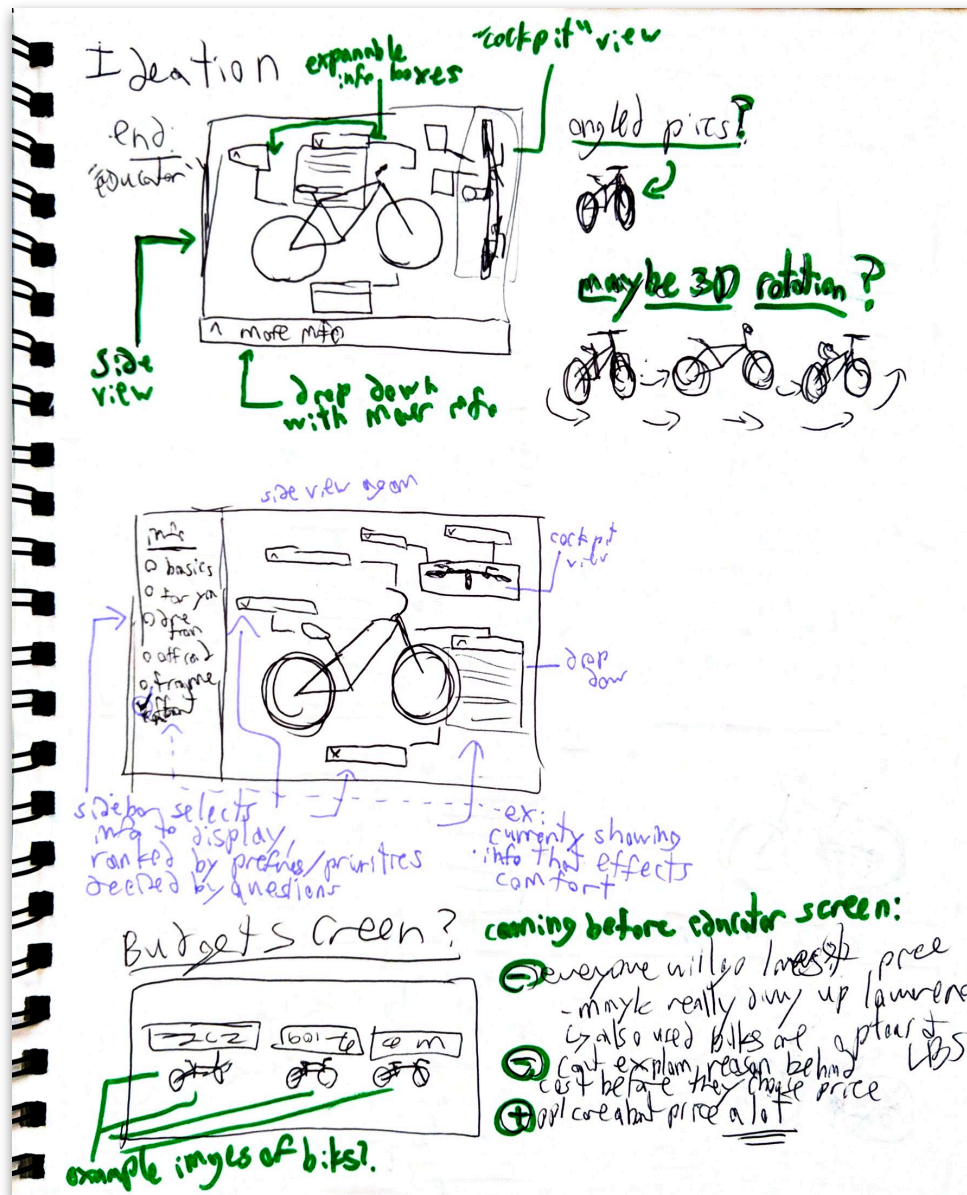 Ideation
expanable
info boxes
"cockpit" view
end:
"educator"
angled pics?
maybe 3D rotation?
^ more info
side
view
drop down
with more info
side view again
info
basics
for you
off road
frame
cockpit
view
drop
dow
sidebar selects
info to display,
ranked by prefrnes/priorities
decided by questions
ex:
currently showing
info that effects
comfort
Budget screen?
example imges of biks?
coming before educator screen:
- everyone will go lowest price
really
also used bikes are
LBS
- cant explain reason behind
cost before they choose price
+ ppl care about price a lot